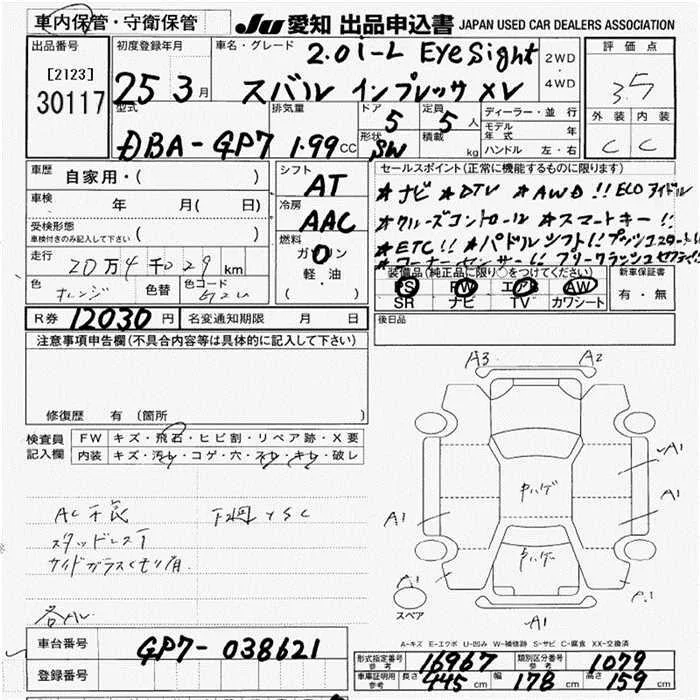 車内保管・守衛保管 JU 愛知 出品申込書 JAPAN USED CAR DEALERS ASSOCIATION
出品番号 初度登録年月 車名・グレード 2.0i-L EyeSight 2WD 評価点
[2123] 25 3月 スバル インプレッサ XV ・ 4WD 3.5
30117 型式 排気量 ドア 5 定員 5人 ディーラー・並行 外装 内装
DBA-GP7 1.99CC 形状 SW 積載 kg モデル年式 年 C C
ハンドル 左・右
車歴 自家用・( ) シフト AT セールスポイント(正常に機能するものに限ります)
車検 年 月( 日) 冷房 AAC ★ナビ ★DTV ★AWD!! ECOアイドル
受検形態 ★クルーズコントロール ★スマートキー!!
車検付きのみ記入して下さい ( ) 燃料 ガソリン ★ETC!! ★パドルシフト!!
走行 20万4千029km 軽・油 ★コーナーセンサー!!
( ) 装備品(純正品に限り○をつけてください) 新車保証書
色 オレンジ 色替 色コード G2U PS PW エアB AW 有・無
SR ナビ TV カワシート
R券 12030円 名変通知期限 月 日 後日品
注意事項申告欄(不具合内容等は具体的に記入して下さい)
A3 A2
修復歴 有 (箇所 )
検査員 FW キズ・飛石・ヒビ割・リペア跡・X要
記入欄 内装 キズ・汚レ・コゲ・穴・スレ・キレ・破レ
A1
キハゲ
A1
AC不良 下廻サSC
A1
スタッドレス
キハゲ
サイドガラスくもり有
A1
スペア
A1
A-キズ E-エクボ U-凹み W-補修跡 S-サビ C-腐食 XX-交換済
車台番号 GP7-038621
型式指定番号 参考 16967 類別区分番号 参考 1079
登録番号 車庫証明用 参考 長さ 445cm 幅 178cm 高さ 159cm